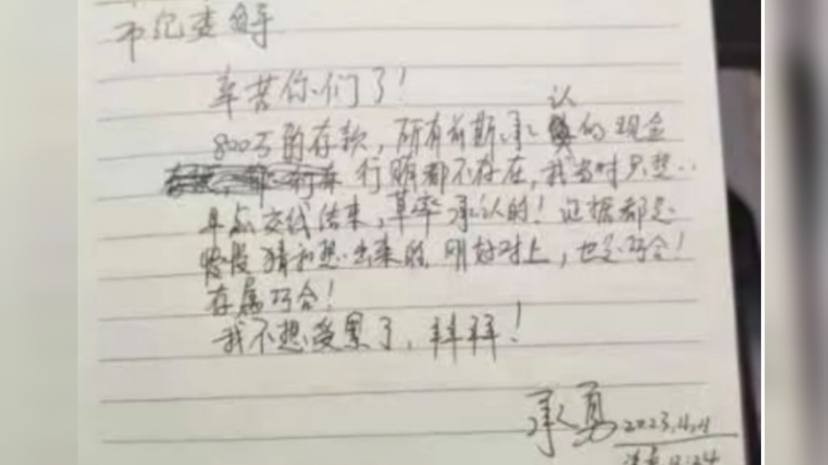 市纪委
辛苦你们了！
认
800万的存款，所有前期承的现金
行贿都不存在，我当时只想
早点交代结束，草率承认的！证据都是
猜和想出来的，刚好对上，也是巧合！
存属巧合！
我不想受累了，拜拜！
承勇 2023.4.4